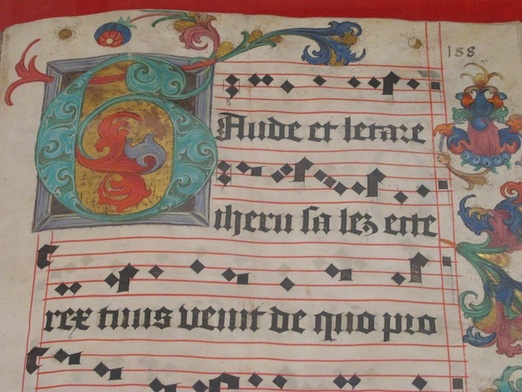 188
GAude et letare
iheru sa lez ecce
rex tuus venit de quo pro